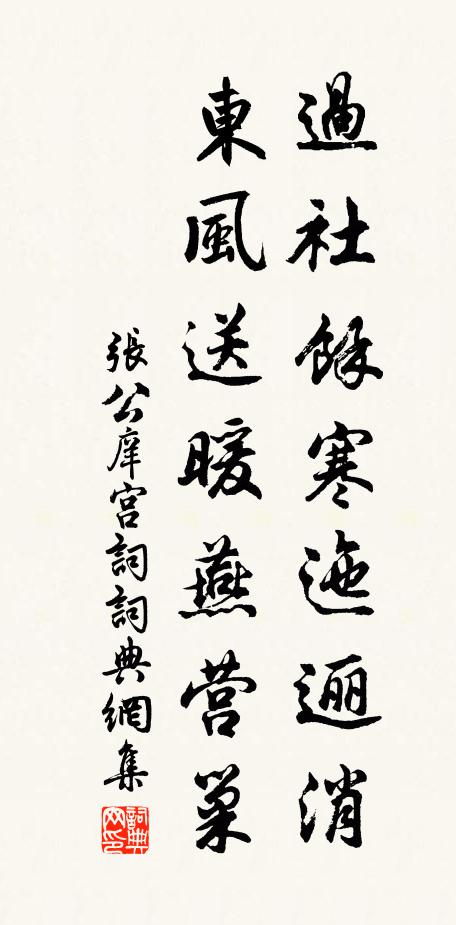 過社餘寒迤逦消
東風送暖燕营巢
張公庠宫詞詞典網集
詞典网印